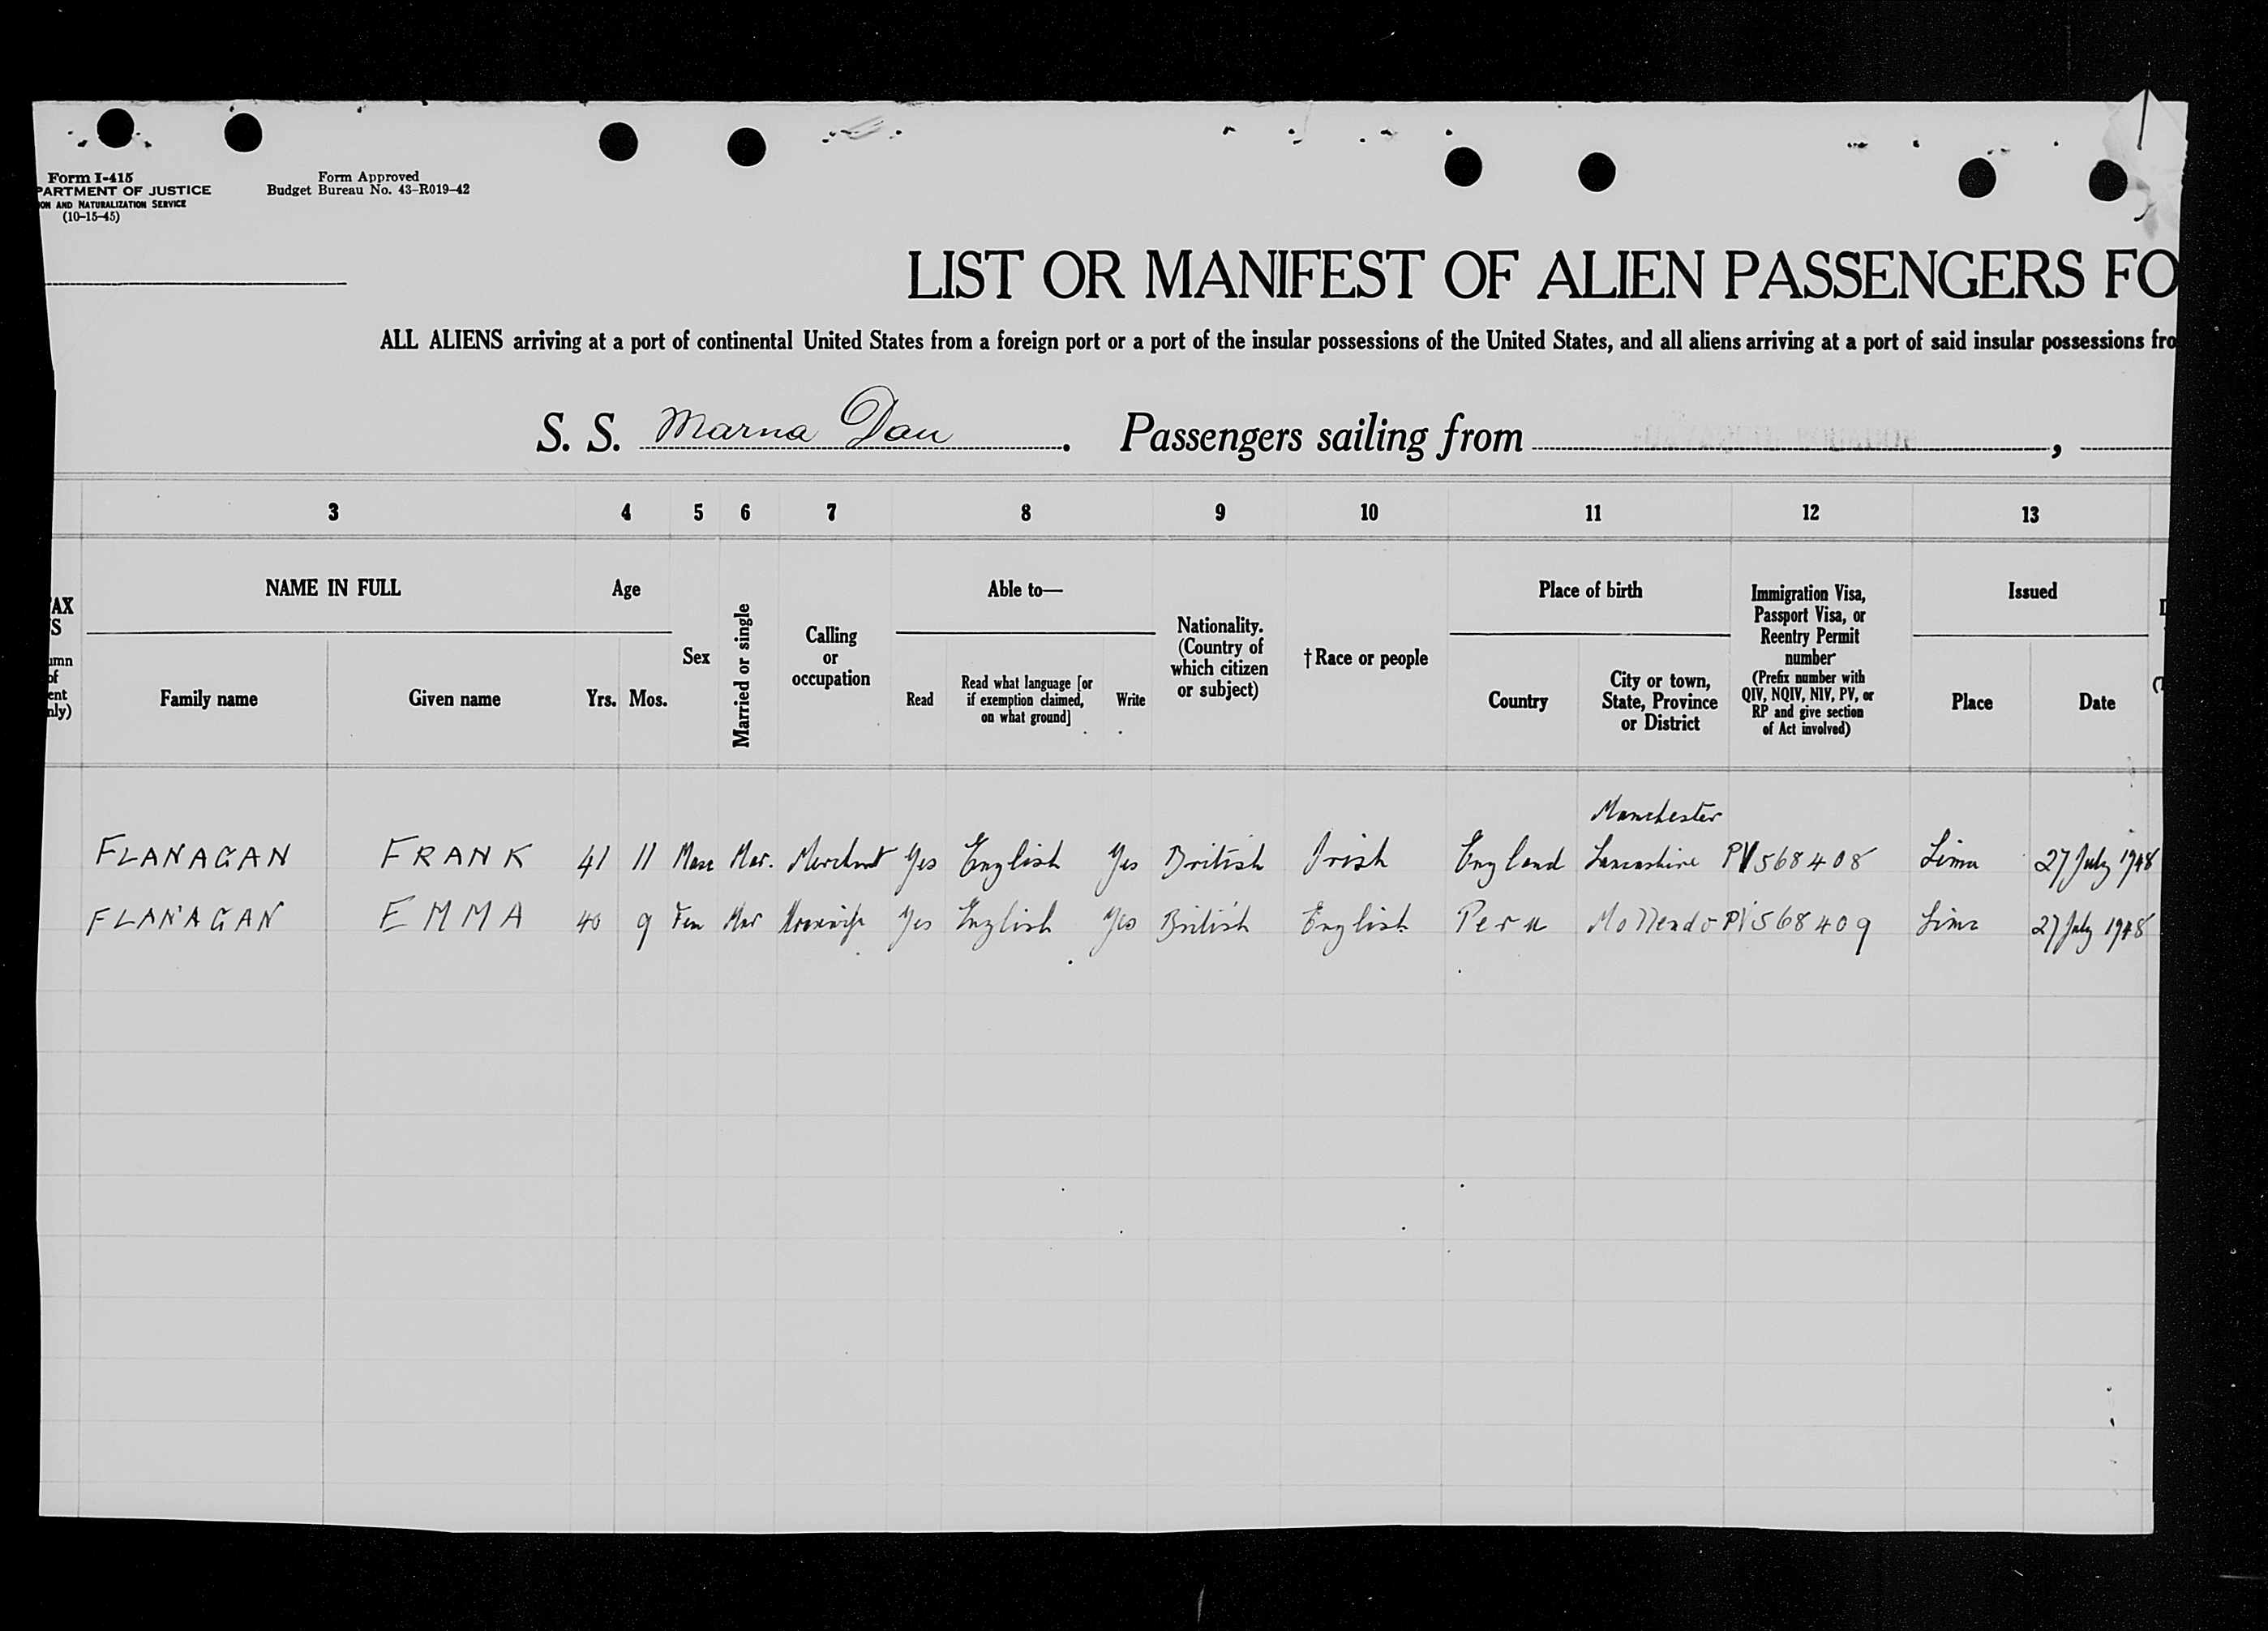 Form I-415
PARTMENT OF JUSTICE
ON AND NATURALIZATION SERVICE
(10-15-45)
Form Approved
Budget Bureau No. 43-R019-42
LIST OR MANIFEST OF ALIEN PASSENGERS FO
ALL ALIENS arriving at a port of continental United States from a foreign port or a port of the insular possessions of the United States, and all aliens arriving at a port of said insular possessions fro
S. S. Marna Dau. Passengers sailing from ,
3 4 5 6 7 8 9 10 11 12 13
AX
S
umn
of
ent
nly)
NAME IN FULL
Family name Given name
Age
Yrs. Mos.
Sex
Married or single
Calling
or
occupation
Able to—
Read
Read what language [or
if exemption claimed,
on what ground]
Write
Nationality.
(Country of
which citizen
or subject)
†Race or people
Place of birth
Country
City or town,
State, Province
or District
Immigration Visa,
Passport Visa, or
Reentry Permit
number
(Prefix number with
QIV, NQIV, NIV, PV, or
RP and give section
of Act involved)
Issued
Place Date
Manchester
FLANAGAN FRANK 41 11 Masc Mar. Merchant Yes English Yes British Irish England Lancashire PV568408 Lima 27 July 1948
FLANAGAN EMMA 40 9 Fem Mar Housewife Yes English Yes British English Peru Mollendo PV568409 Lima 27 July 1948